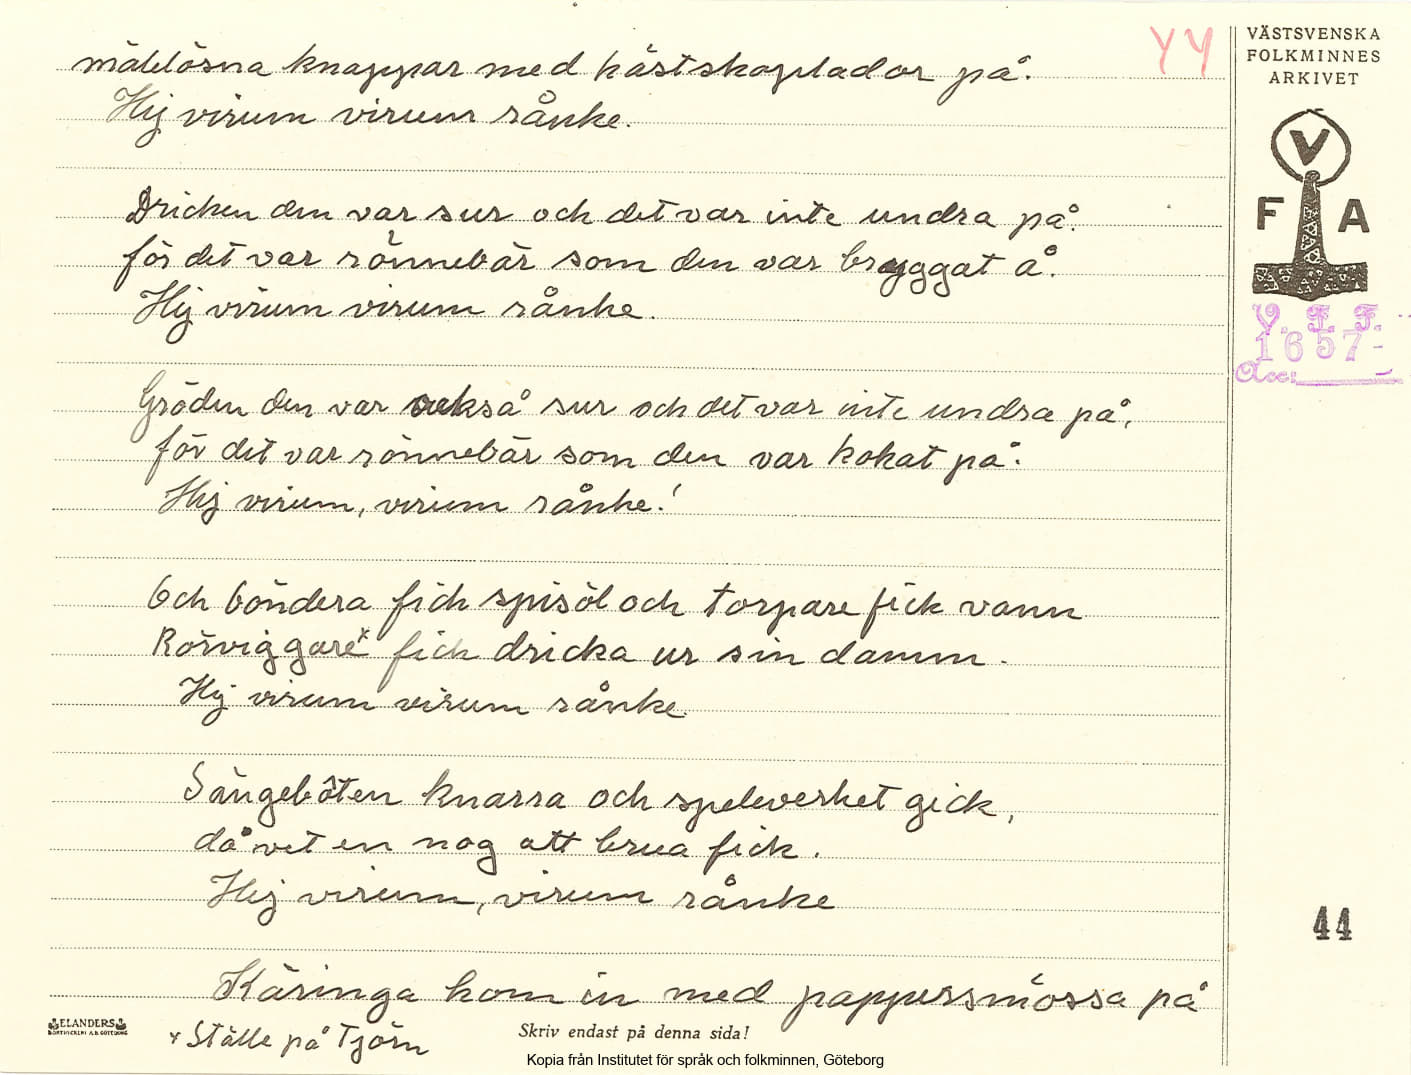 YY
VÄSTSVENSKA
FOLKMINNES
ARKIVET
V
F A
V. F. F.
1657
Acc:
mållösna knappar med hästskoplador på.
Hej virum virum rånke.
Dricken den var sur och det var inte undra på.
för det var rönnebär som den var bryggat å.
Hej virum virum rånke.
Gröden den var också sur och det var inte undra på,
för det var rönnebär som den var kokat på.
Hej virum, virum rånke!
Och böndera fick spisöl och torpare fick vann
Rörviggare x fick dricka ur sin damm.
Hej virum virum rånke.
Sängebôten knarra och speleverket gick,
då vet en nog att brua fick.
Hej virum, virum rånke
Käringa kom in med pappersmössa på
x Ställe på Tjörn
44
ELANDERS
Skriv endast på denna sida!
Kopia från Institutet för språk och folkminnen, Göteborg